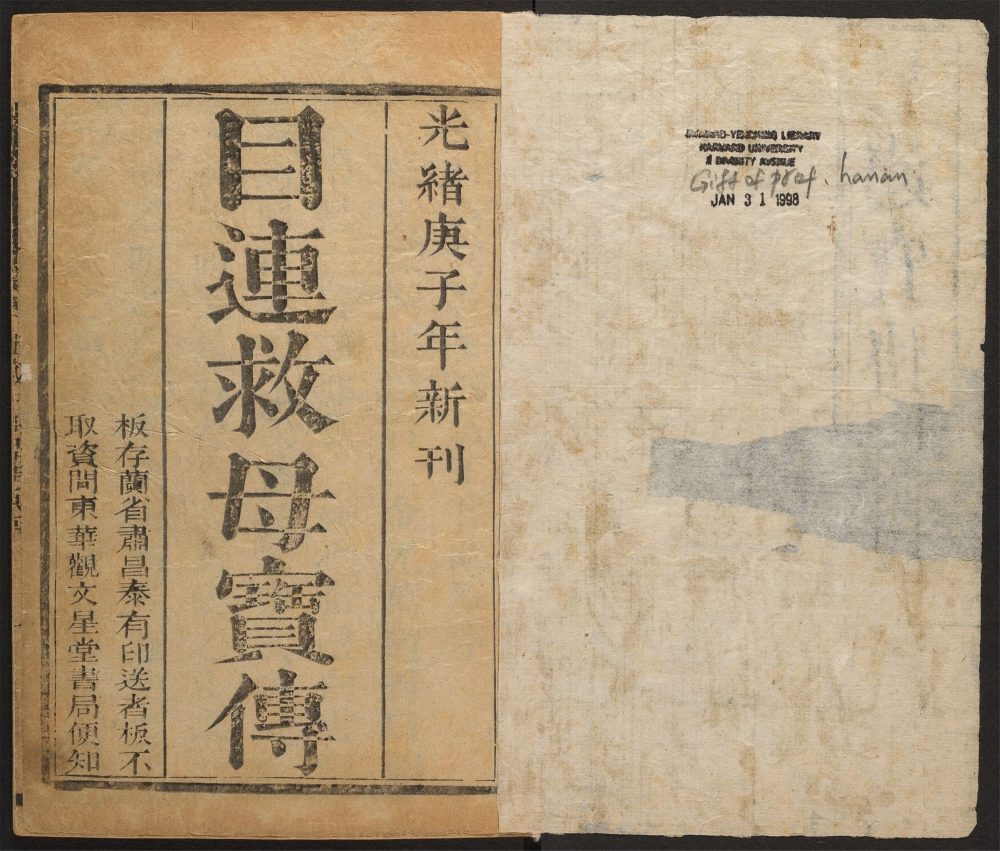 光緒庚子年新刊
目連救母寶傳
板存蘭省肅昌泰有印送者板不
取資問東華觀文星堂書局便知
HARVARD-YENCHING LIBRARY
HARVARD UNIVERSITY
2 DIVINITY AVENUE
Gift of prof. hanan
JAN 31 1998